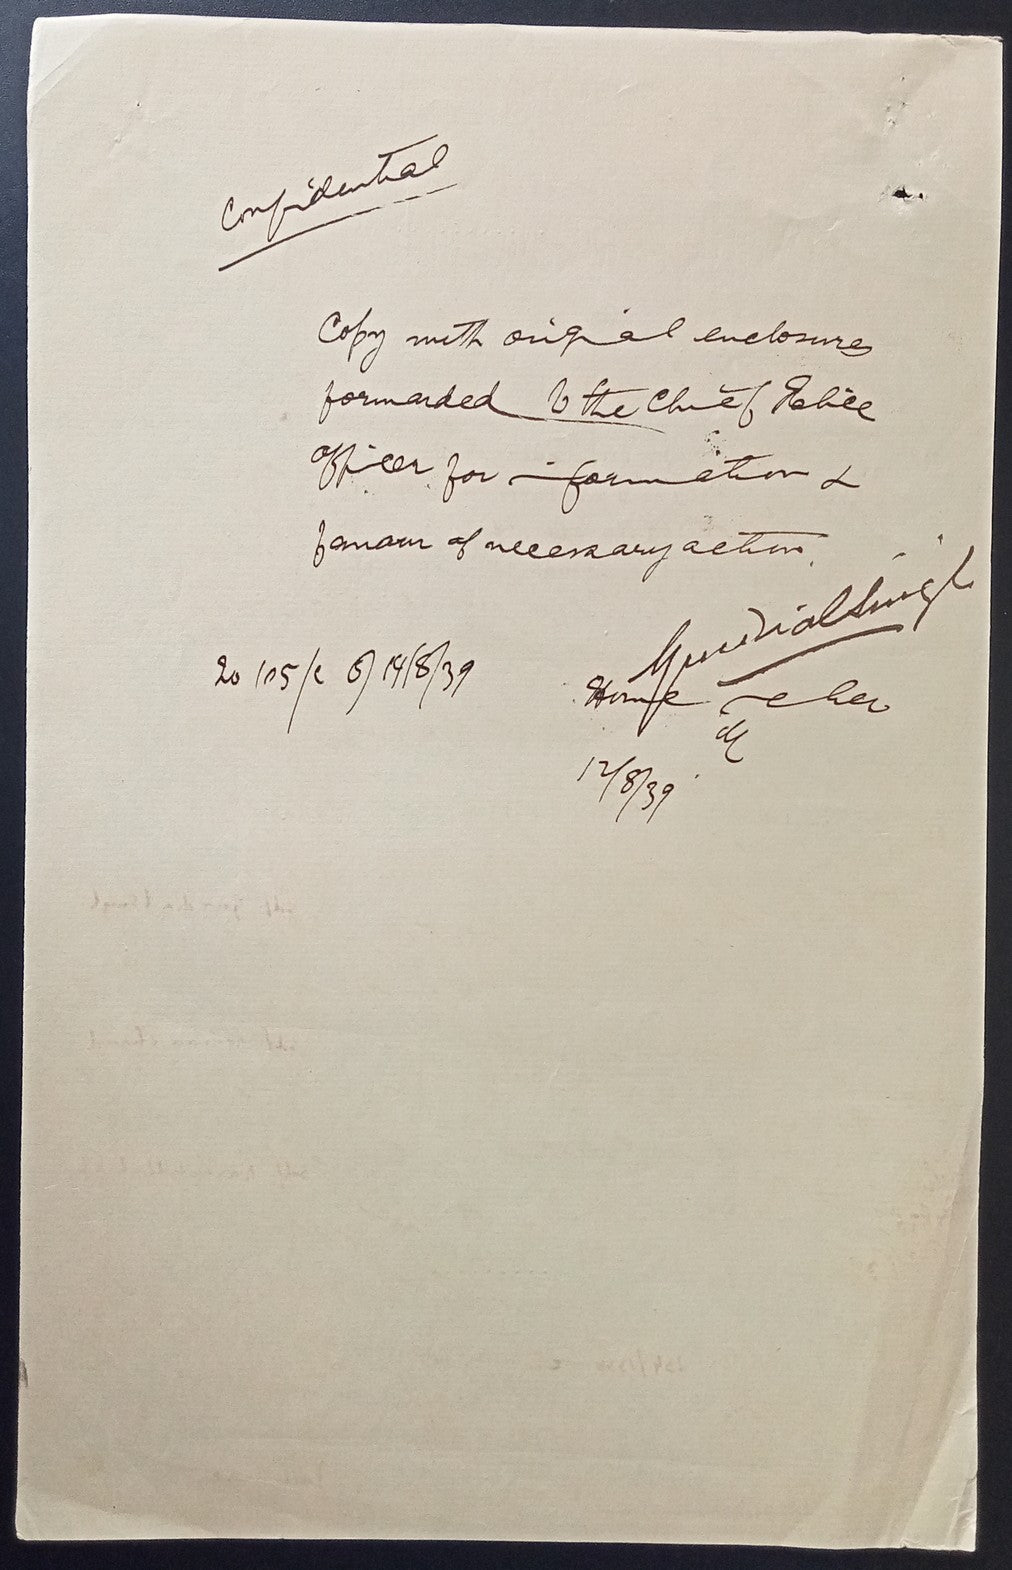 Confidential
Copy with original enclosures
forwarded to the Chief Police
Officer for information &
favour of necessary action.
Gurdial Singh
No 105/c of 14/8/39
Home
12/8/39